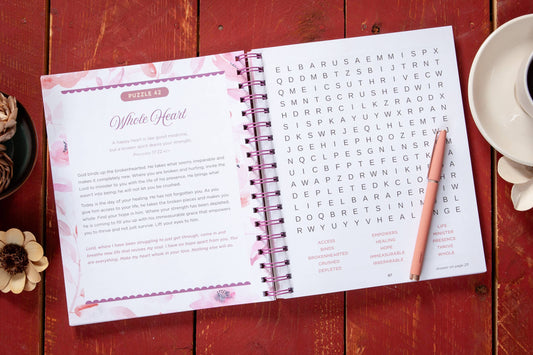 PUZZLE 42
Whole Heart
A happy heart is like good medicine,
but a broken spirit drains your strength.
Proverbs 17:22
God binds up the brokenhearted. He takes what seems irreparable and
makes it completely new. Where you are broken and hurting, invite the
Lord to minister to you with the life of his presence. He brings what
wasn't into being; he will not let you be crushed.
Today is the day of your healing. He has not forgotten you. As you
give him access to your life, he takes the broken pieces and makes you
whole. Find your hope in him. Where your strength has been depleted,
he is coming to fill you up with his immeasurable grace that empowers
you to thrive and not just survive. Lift your eyes to him.
Lord, where I have been struggling to just get through, come in and
breathe new life that revives my soul. I have no hope apart from you. You
are everything. Make my heart whole in your love. Nothing else will do.
E L B A R U S A E M M I S P X
Q D D M B T Z S B I J T R N T
Q M E I C S U T H R I V E C W
S M N T G C R U S H E D W I R
H D R R R C I L K Z R A O D X
S I S P K A Y U Y W X A P A N
D K S W R J E Q L H L E M T E
N G E H I E P H Q O Z F F W
N Q C L P E S G N L N S R
I B C F B P T E F G I
A W A P Z D R W N I K H A
D E P L E T E D K C L O
L I F E L B A R A P E R R I
D O Q B R E T S I N I M
R W Y U Y Y V H E A L I N G E
ACCESS
BINDS
BROKENHEARTED
CRUSHED
DEPLETED
EMPOWERS
HEALING
HOPE
IMMEASURABLE
IRREPARABLE
LIFE
MINISTER
PRESENCE
THRIVE
WHOLE
answers on page